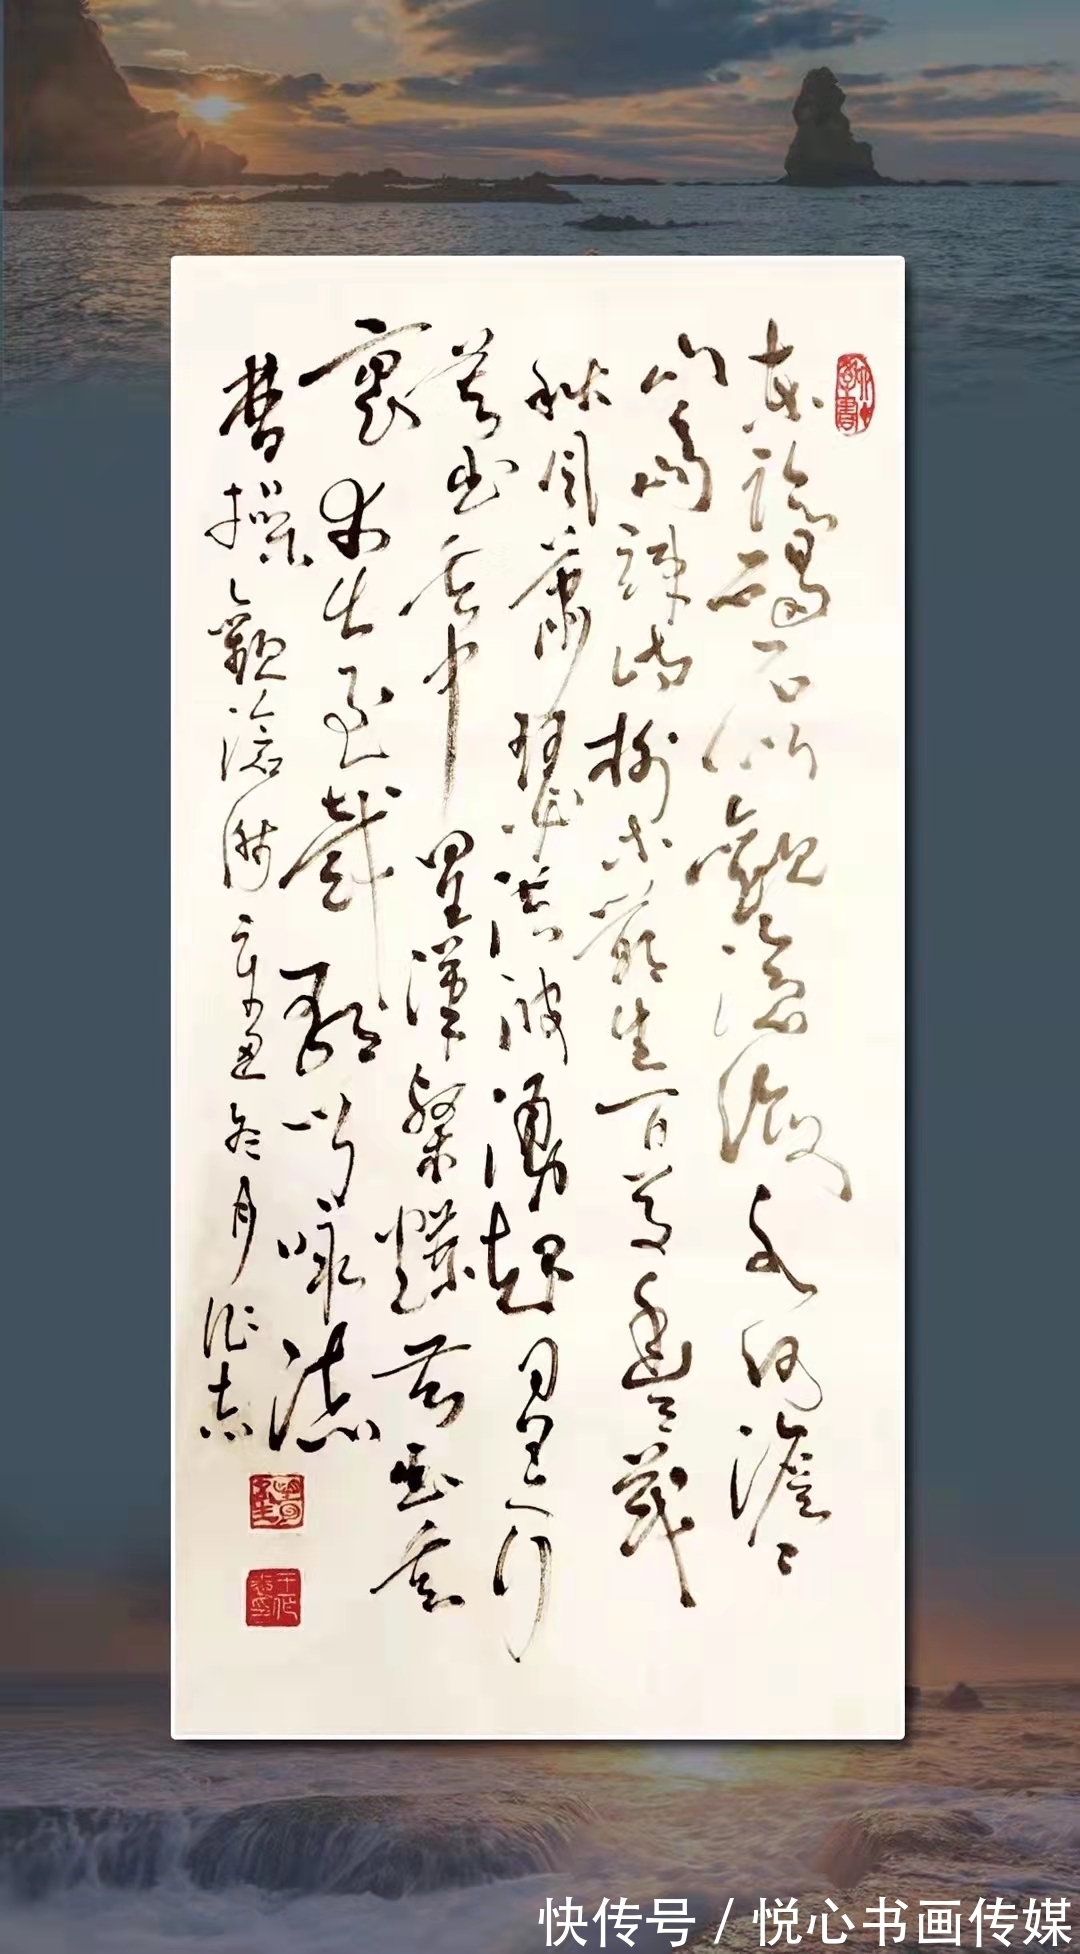 東臨碣石以觀滄海水何澹々
山島竦峙樹木叢生百草豐茂
秋風蕭瑟洪波湧起日月之行
若出其中星漢粲爛若出其
裏幸甚至哉歌以詠志
曹操觀滄海辛丑冬月
快传号 / 悦心书画传媒